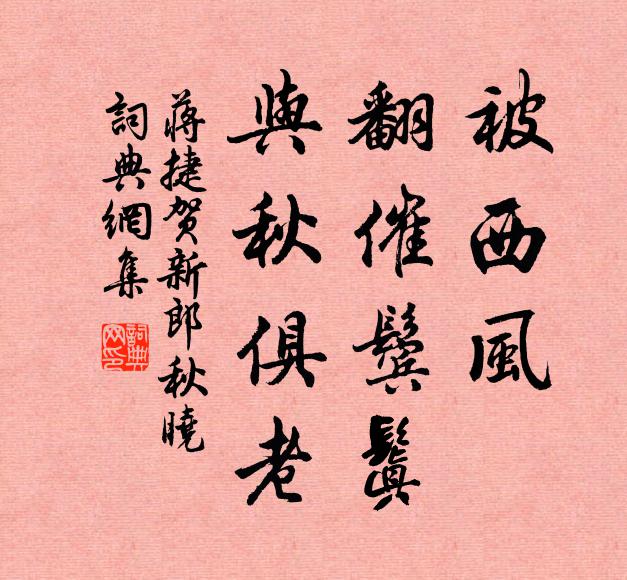 被西風
翻催鬓鬒
與秋俱老
蔣捷贺新郎秋曉
詞典網集
詞典网印